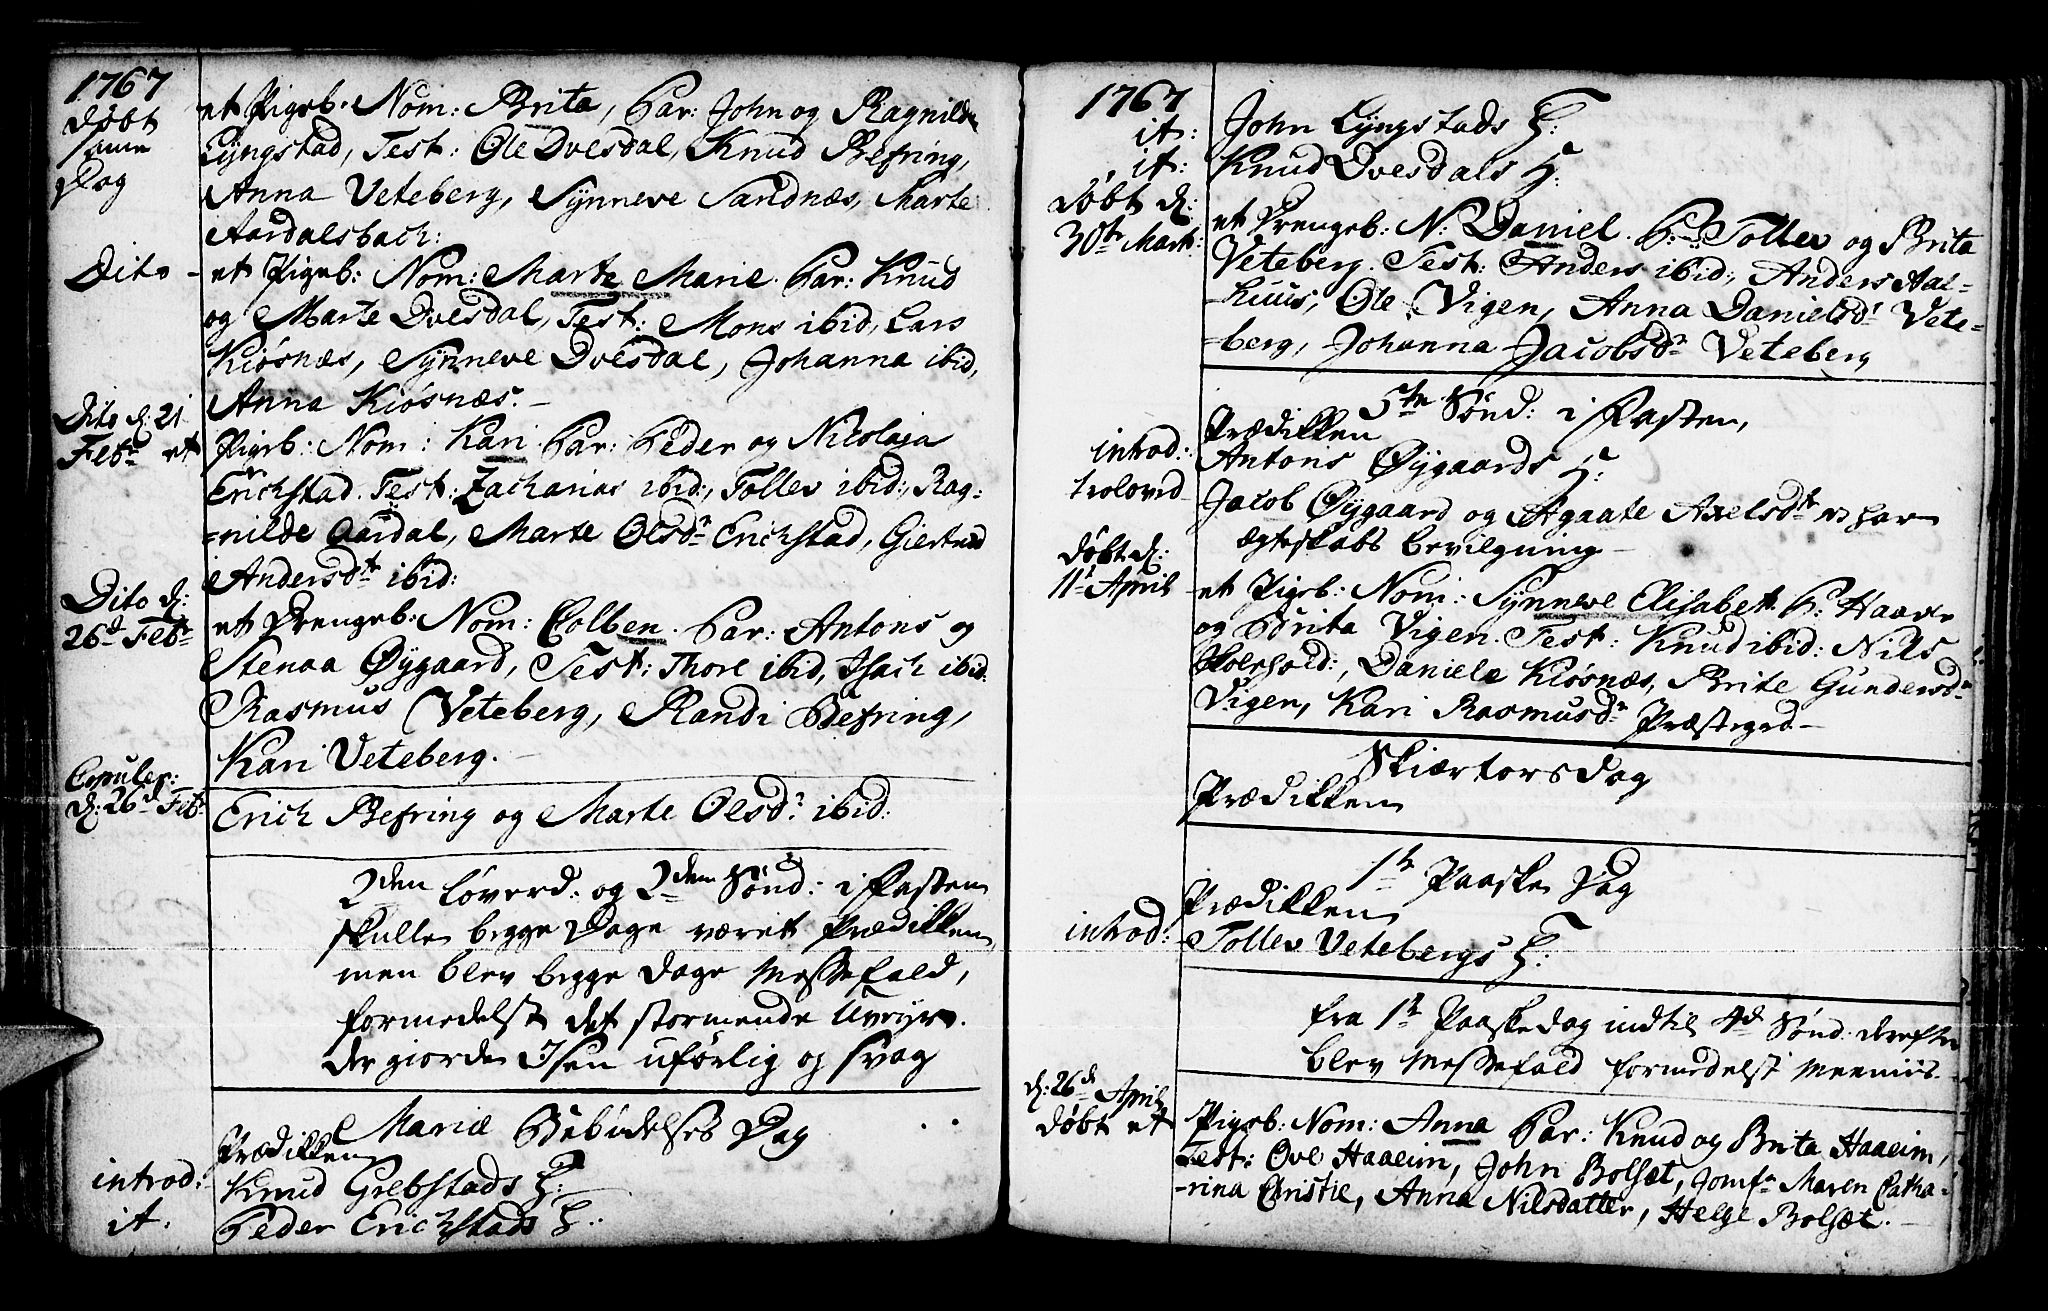 1767
døbt
same
Dag
et Pigeb: Nom: Brita, Par: John og Ragnilde
Lÿngstad, Test: Ole Dvesdal, Knud Befring,
Anna Veteberg, Sÿnneve Sandnæs, Marte
Aardalsbach:
Dito
et Pigeb: Nom: Marte Marie. Par: Knud
og Marte Dvesdal, Test: Mons ibid, Lars
Kiøsnæs, Sÿnneve Dvesdal, Johanna ibid,
Anna Kiøsnæs.
Dito d: 21
Febr et
Pigeb: Nom: Kari. Par: Peder og Nicolaja
Erichstad. Test: Zacharias ibid:, Tollev ibid:, Rag=
=nilde Aardal, Marte Olsdr Erichstad, Giertrud
Andersdtr ibid:
Dito d:
26d Febr
et Drengeb: Nom: Colben. Par: Antons og
Stenaa Øÿgaard, Test: Thore ibid, Isach ibid:
Rasmus Veteberg, Randi Befring,
Kari Veteberg.
Copuler:
d: 26d Febr
Erich Befring og Marte Olsdr ibid:
2den Løverd: og 2den Sønd: i Fasten
skulle begge Dage været Prædikken
men blev begge Dage Messefald,
formedelst det stormende Uveÿr
der giorde Isen uførlig og svag
Mariæ Bebudelses Dag
Prædikken
introd: Knud Grebstads H:
it. Peder Erichstads H:
1767
it: John Lÿngstads H:
it: Knud Dvesdals H:
døbt d:
30te Marti:
et Drengeb: N: Daniel. P: Tollev og Brita
Veteberg. Test: Anders ibid:, Anders Aal=
=huus, Ole Vigen, Anna Danielsdr Vete=
=berg, Johanna Jacobsdr Veteberg
5te Sønd: i Fasten,
Prædikken
introd: Antons Øÿgaards H:
trolovd Jacob Øÿgaard og Agaate Axelsdtr har
ægteskabs bevilgning
døbt d:
11te April
et Pigeb: Nom: Sÿnneve Elisabet. P: Haave
og Brita Vigen. Test: Knud ibid: Nils
Daniele Kiøsnæs, Brite Gundersdr
Vigen, Kari Rasmusdr Præstegrd
Skiærtorsdag
Prædikken
1te Paaske Dag
Prædikken
introd: Tollev Vetebergs H:
fra 1te Paaskedag indtil 4de Sønd: derefter
blev Messefald formedelst Meeniis
d: 26de April
døbt et
Pigeb: Nom: Anna Par: Knud og Brita Haaeim,
Test: Ove Haaeim, John Bolsæt, Jomfr Maren Catha=
=rina Christie, Anna Nilsdatter, Helge Bolsæt.